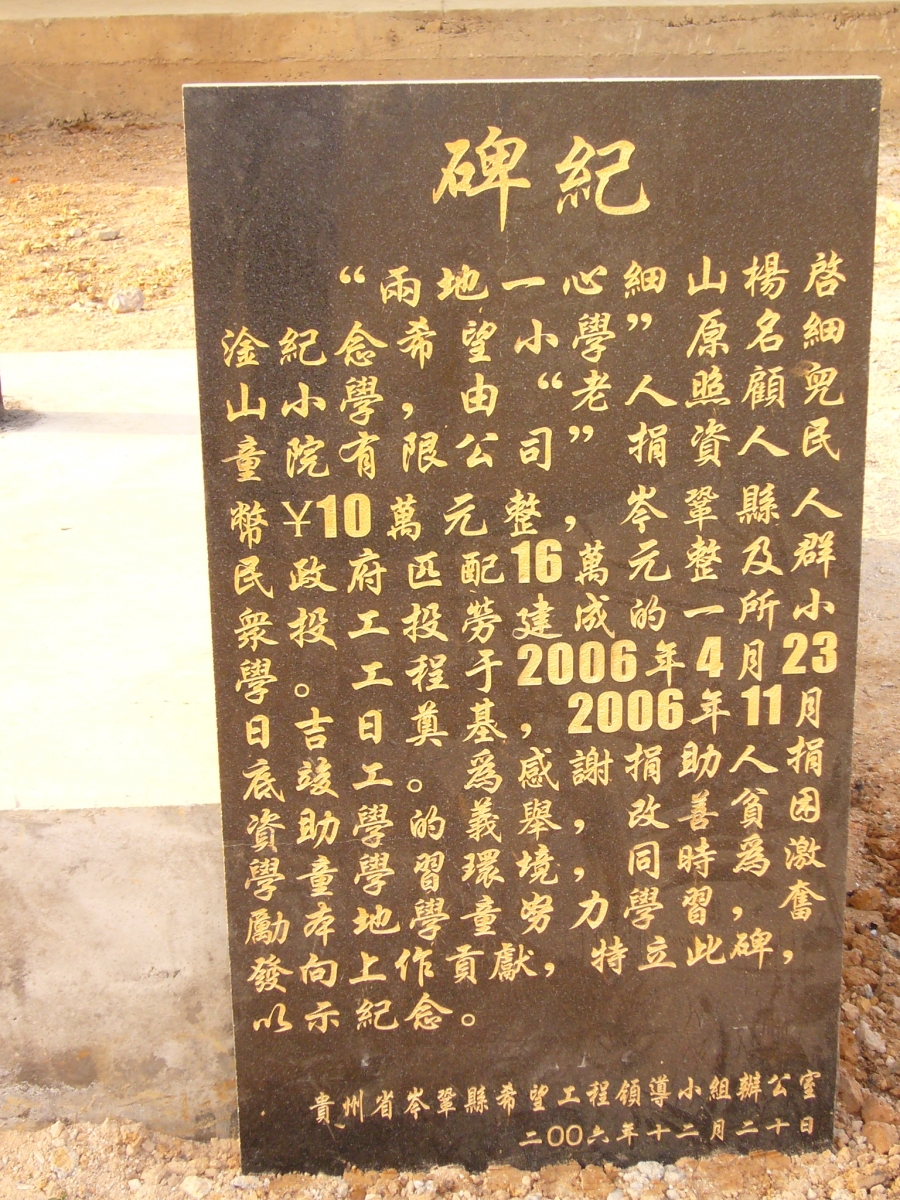 碑紀
“兩地一心細山楊啓
淦紀念希望小學”原名細
山小學，由“老人照顧兒
童院有限公司”捐資人民
幣¥10萬元整，岑鞏縣人
民政府匹配16萬元整及群
衆投工投勞建成的一所小
學。工程于2006年4月23
日吉日奠基，2006年11月
底竣工。爲感謝捐助人捐
資助學的義舉，改善貧困
學童學習環境，同時爲激
勵本地學童努力學習，奮
發向上作貢獻，特立此碑，
以示紀念。
貴州省岑鞏縣希望工程領導小組辦公室
二00六年十二月二十日